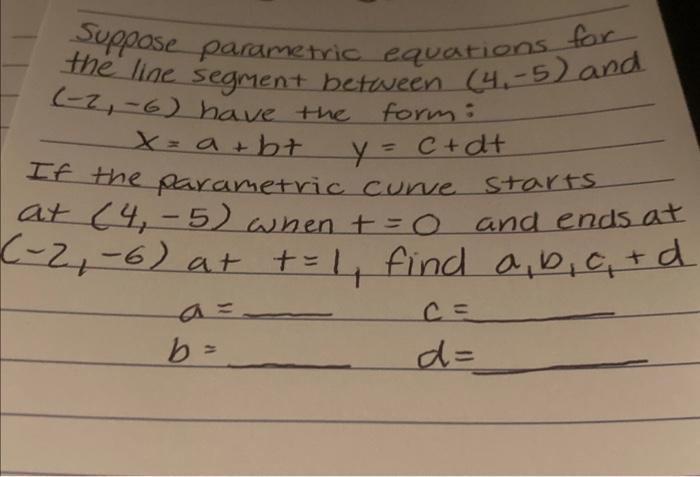 Suppose parametric equations for
the line segment between (4,-5) and
(-2,-6) have the form:
x = a + bt y = c + dt
If the parametric curve starts
at (4,-5) when t = 0 and ends at
(-2,-6) at t = 1, find a, b, c, + d
a = ____ c = ____
b = ____ d = ____